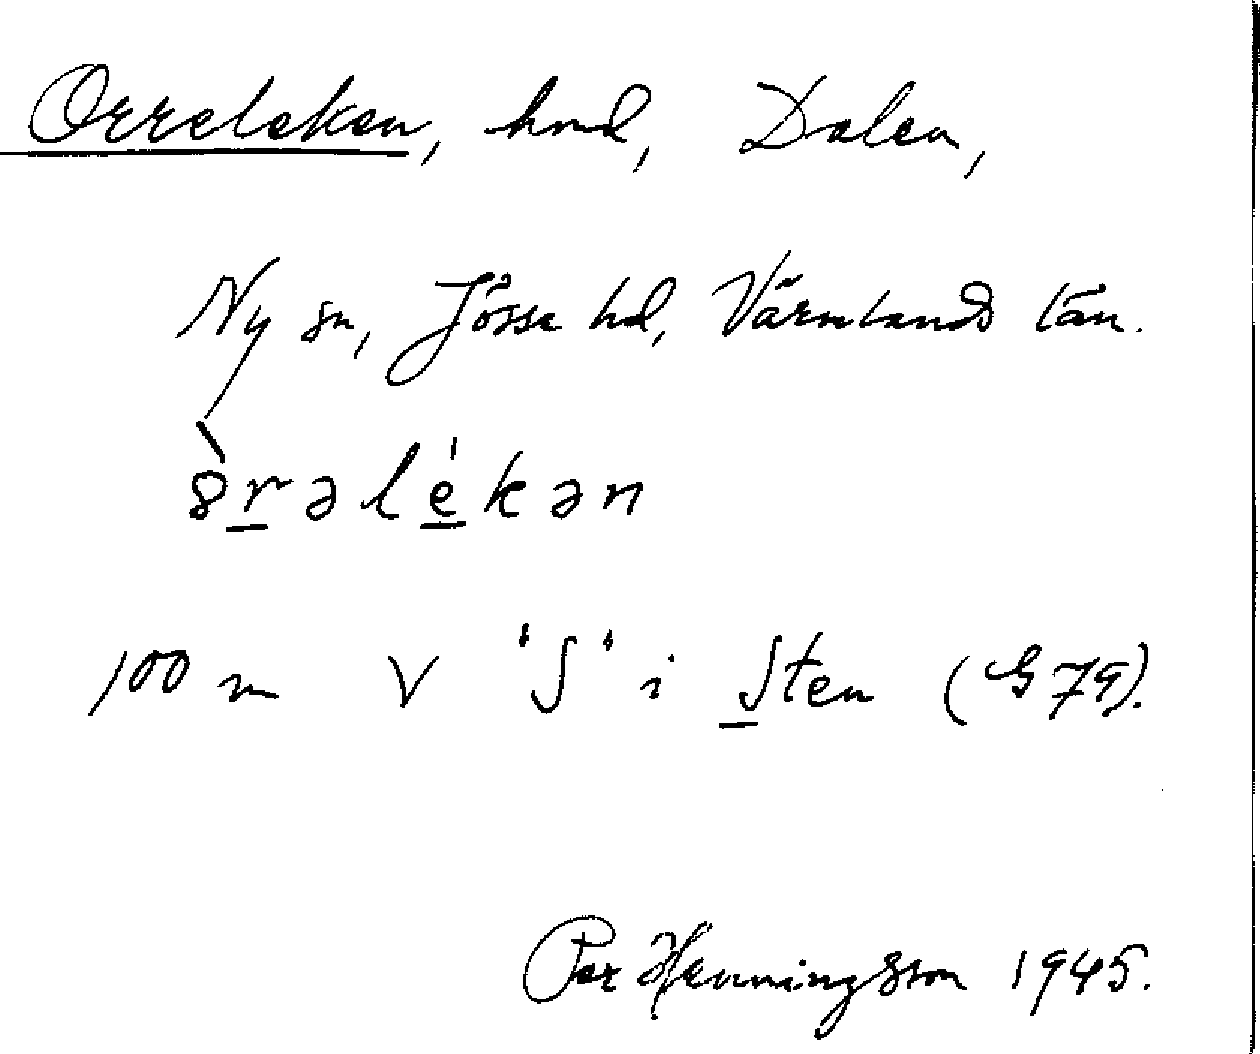 Orreleken, hmd, Dalen,
Ny sn, Jösse hd, Värmlands län.
òrəlékən
100 m V 'S' i Sten (G79).
Per Henningsson 1945.